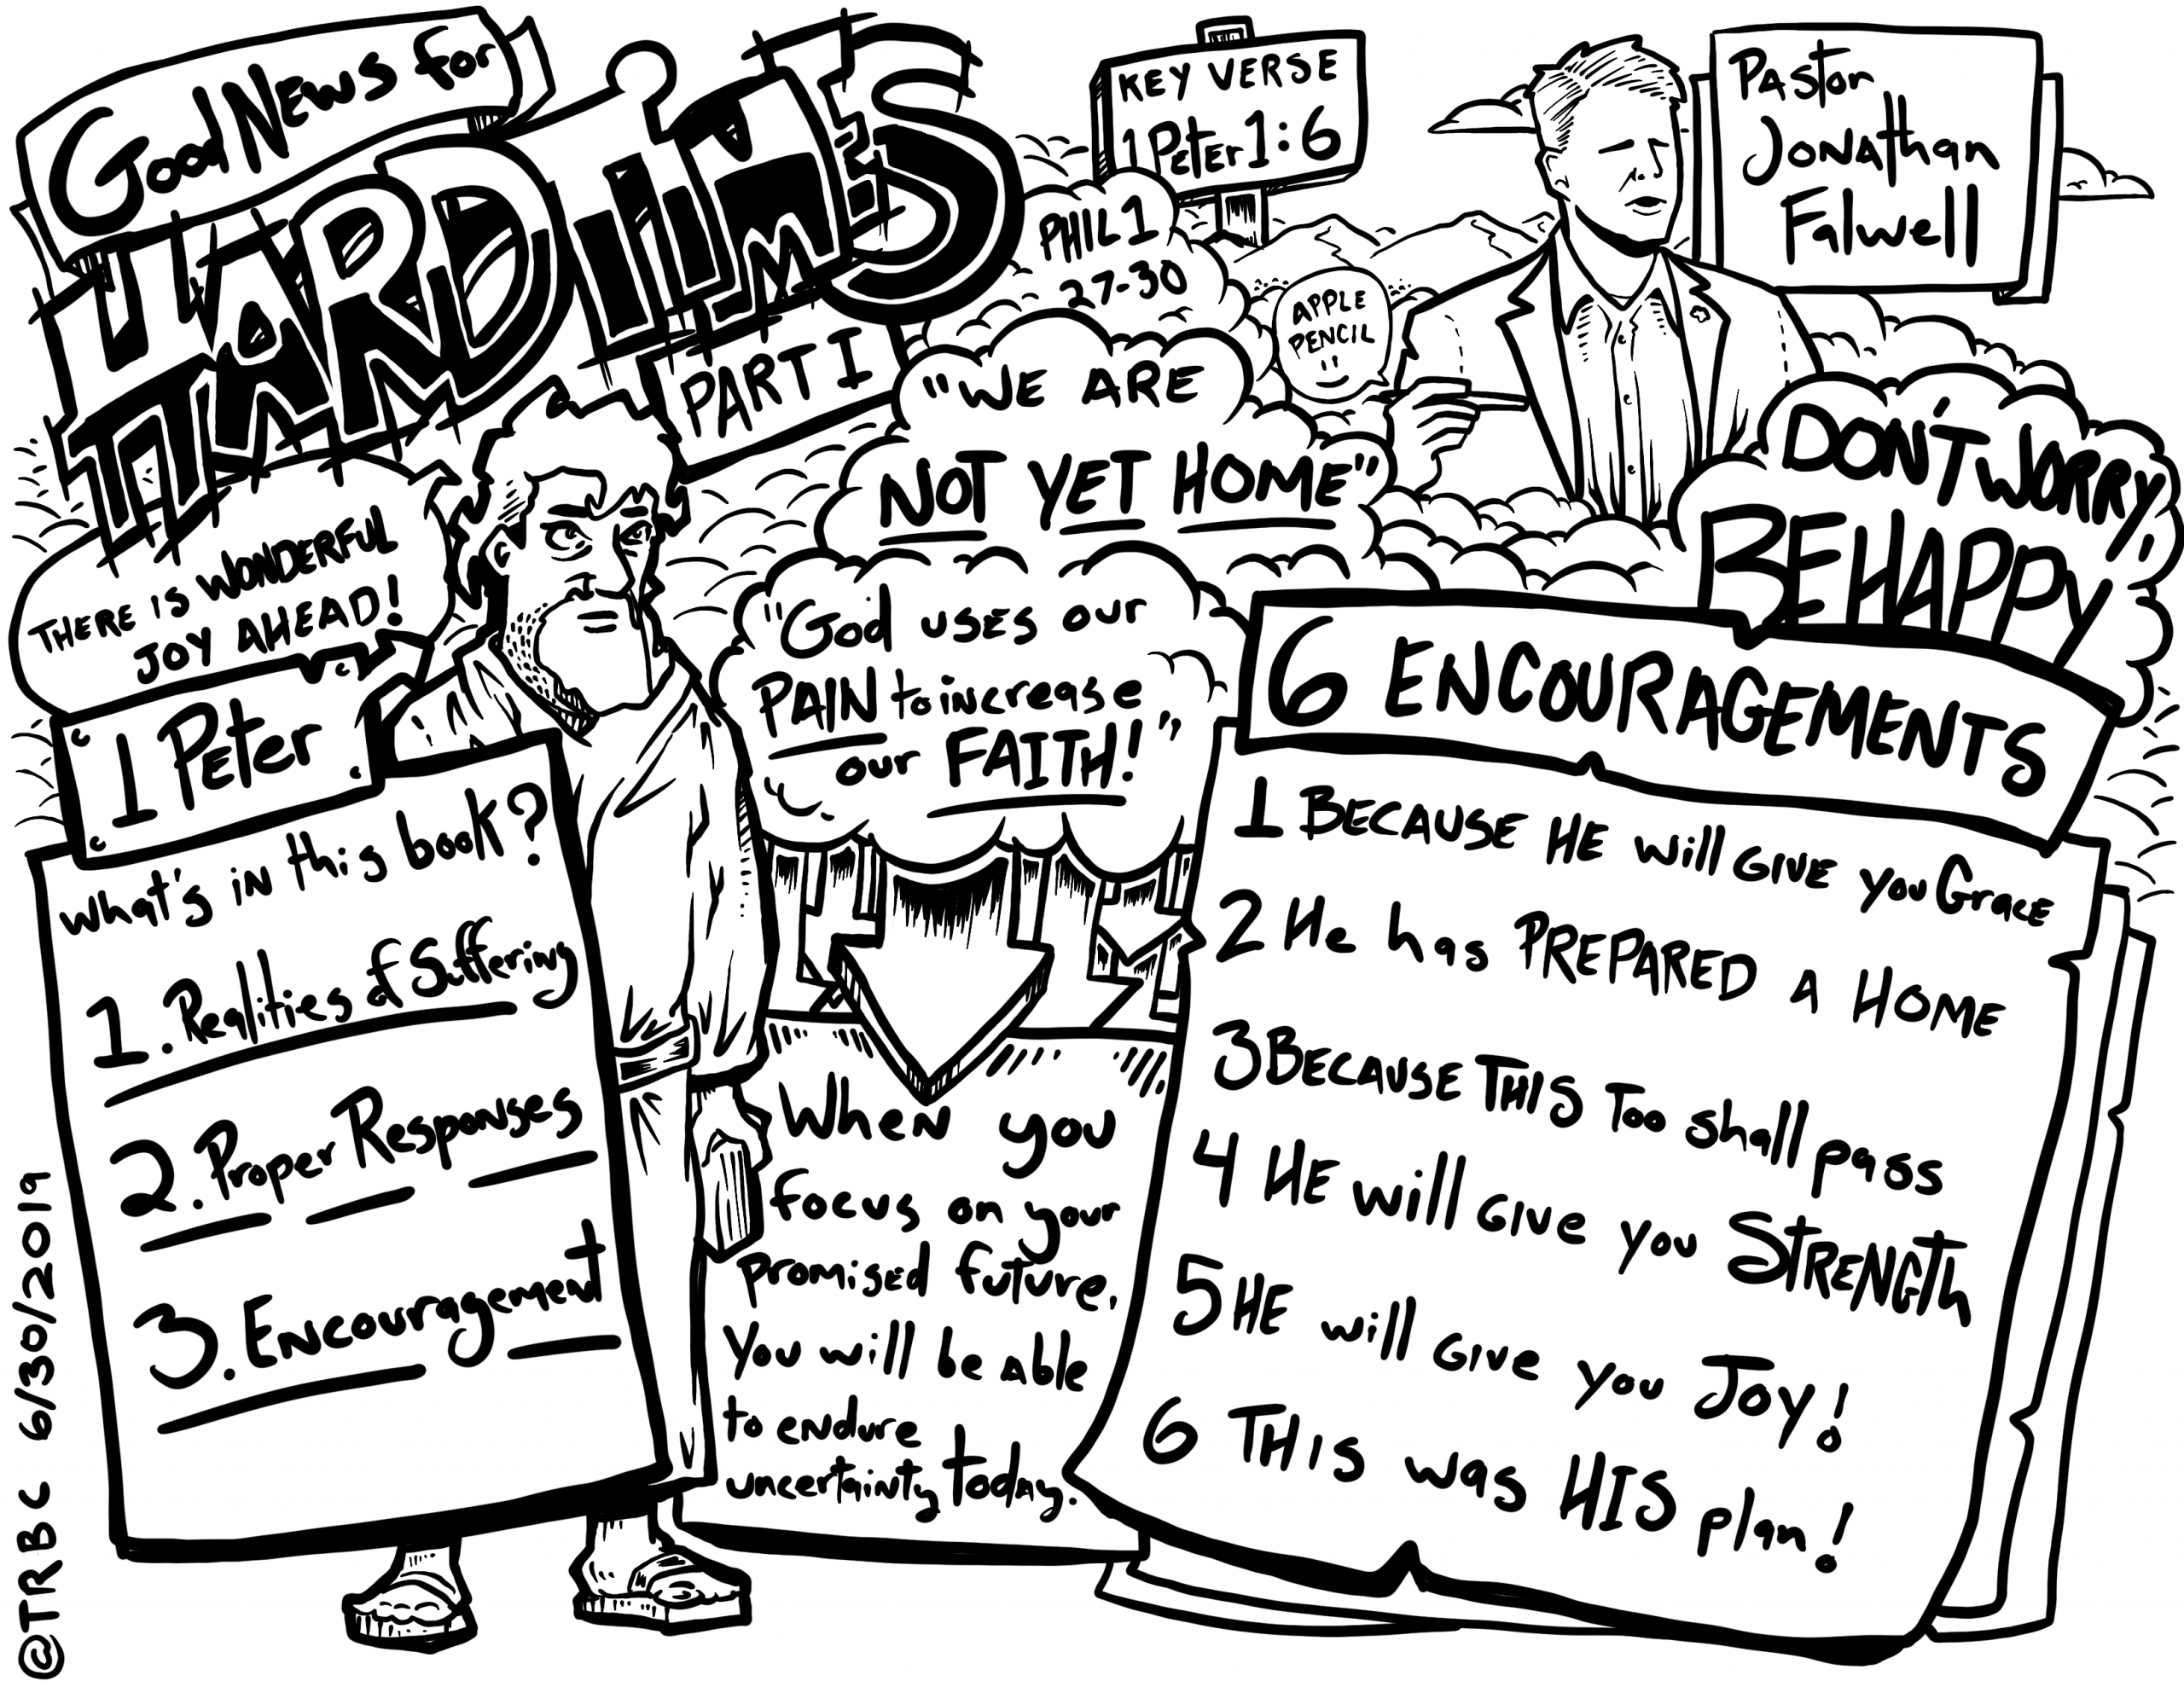 Good News for
HARD TIMES
PART I
KEY VERSE
1 Peter 1:6
PHIL 1
27-30
APPLE
PENCIL
Pastor
Jonathan
Falwell
"WE ARE
NOT YET HOME"
DON'T WORRY
BE HAPPY
THERE IS WONDERFUL
JOY AHEAD!
1 Peter
What's in this book?
1. Realities of Suffering
2. Proper Responses
3. Encouragement
"God uses our
PAIN to increase
our FAITH!"
When you
focus on your
promised future,
You will be able
to endure
uncertainty today.
6 ENCOURAGEMENTS
1 BECAUSE HE will GIVE you GracE
2 He has PREPARED A HOME
3 BECAUSE THIS Too shall pass
4 HE will GIVE you STRENGTH
5 HE will GIVE you JOY!
6 THIS was HIS plan!
@TRBC 6/30/2019